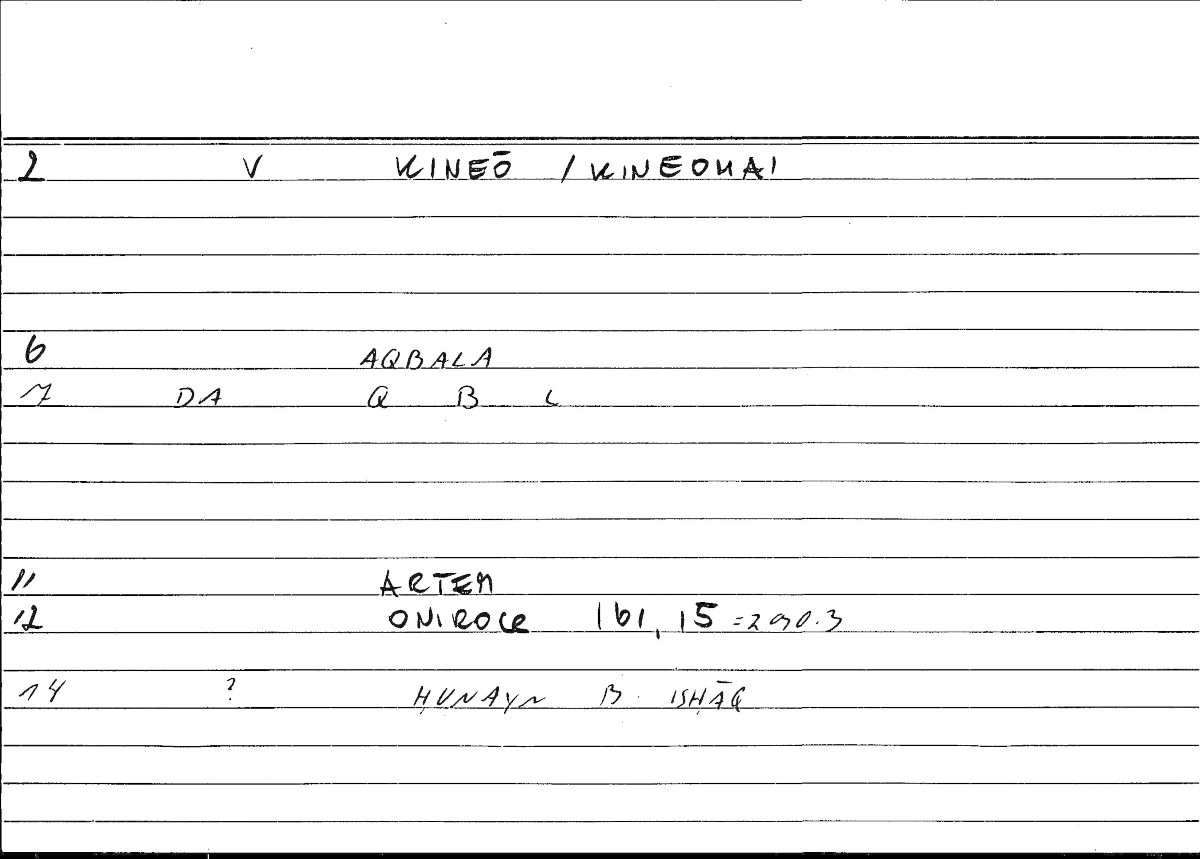 2 V KINEŌ / KINEOMAI
6 AQBALA
7 DA Q B L
11 ARTEM
12 ONIROCR 161,15 =290.3
14 ? ḤUNAYN B. ISḤĀQ